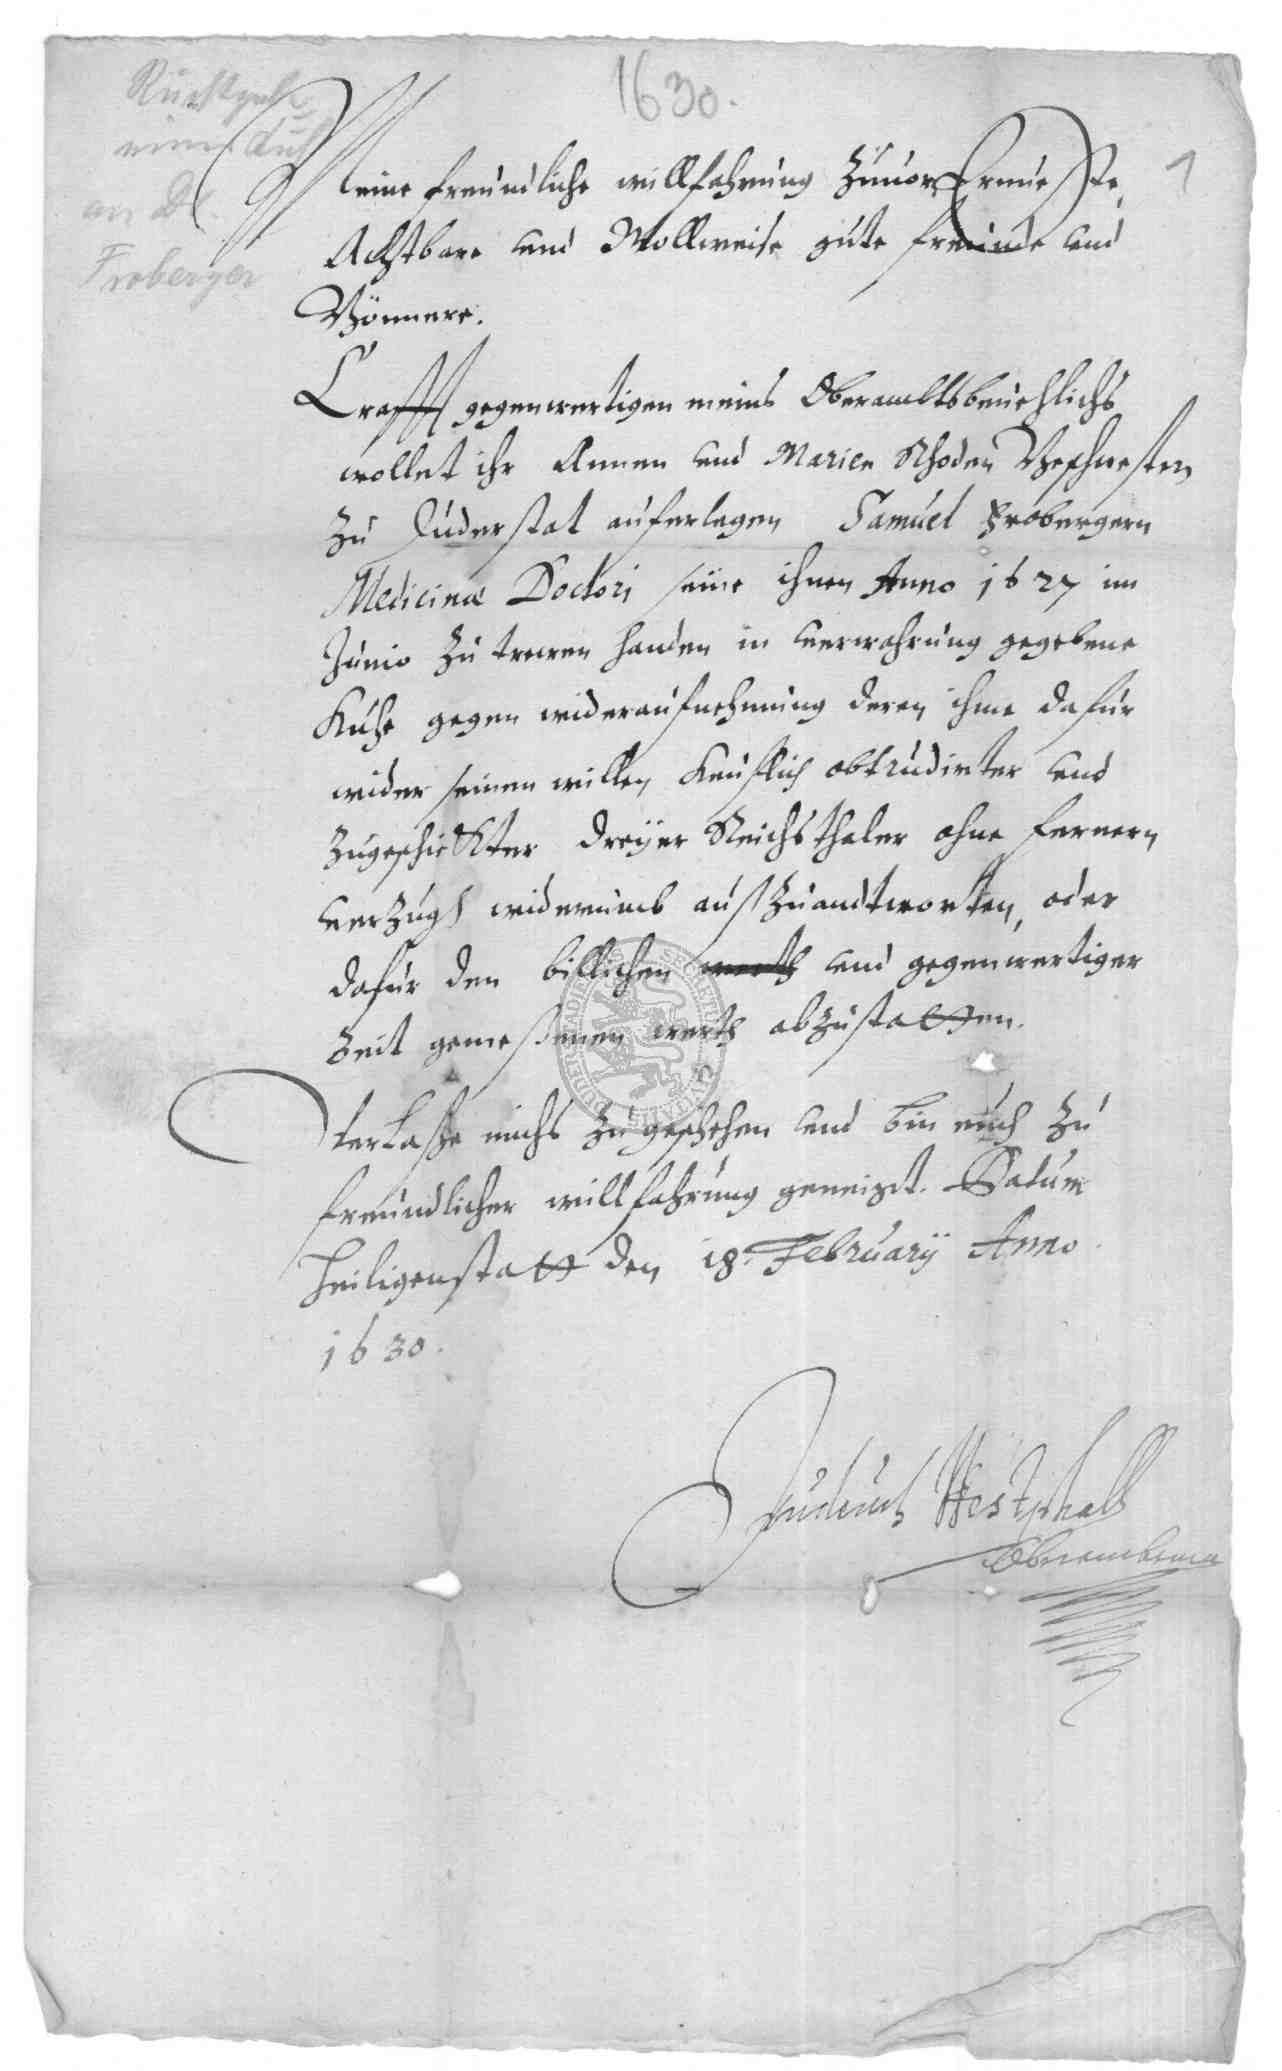 1630.
1
Rückgabe
einer Kuh
an Dr.
Froberger
Meine freundliche willfahrung zuuor, Ernueste,
Achtbare und Wollweise gute freunde und
Gönnere.
Crafft gegenwertigen meins Oberambtsbeuehlichs
wollet ihr Annen und Marien Rhoden Geschwestern
zu Duderstat auferlagen Samuel Frobergern
Medicinæ Doctori seine ihnen Anno 1627 im
Junio zu trewen handen in uerwahrung gegebene
Kuhe gegen wideraufnehmung deren ihme dafür
wider seinen willen keuflich obtrudirter und
zugeschickter dreyer Reichsthaler ohne fernern
uerzugh widerumb außzuandtworten, oder
dafür den billichen werth und gegenwertiger
Zeit gemeßenen werth abzustatten.
Verlaße michs zu geschehen und bin euch zu
freundlicher willfahrung geneigt. Datum
Heiligenstatt den 18. February Anno
1630.
Westphall
Oberambtman